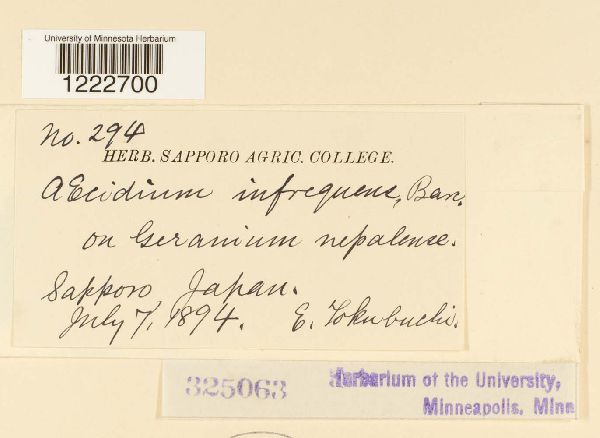 University of Minnesota Herbarium
1222700
No. 294
HERB. SAPPORO AGRIC. COLLEGE.
Æcidium infrequens, Barc.
on Geranium nepalense.
Sapporo, Japan.
July 7, 1894. E. Tokubuchi.
325063
Herbarium of the University,
Minneapolis, Minn